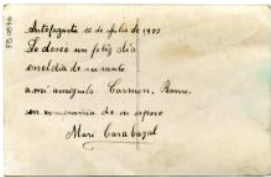 Antofagasta 10 de Julio de 1922
Le deseo un feliz día
en el día de su santo
a mi amiguita Carmen,
en compañía de su esposo
Mari Carabazal